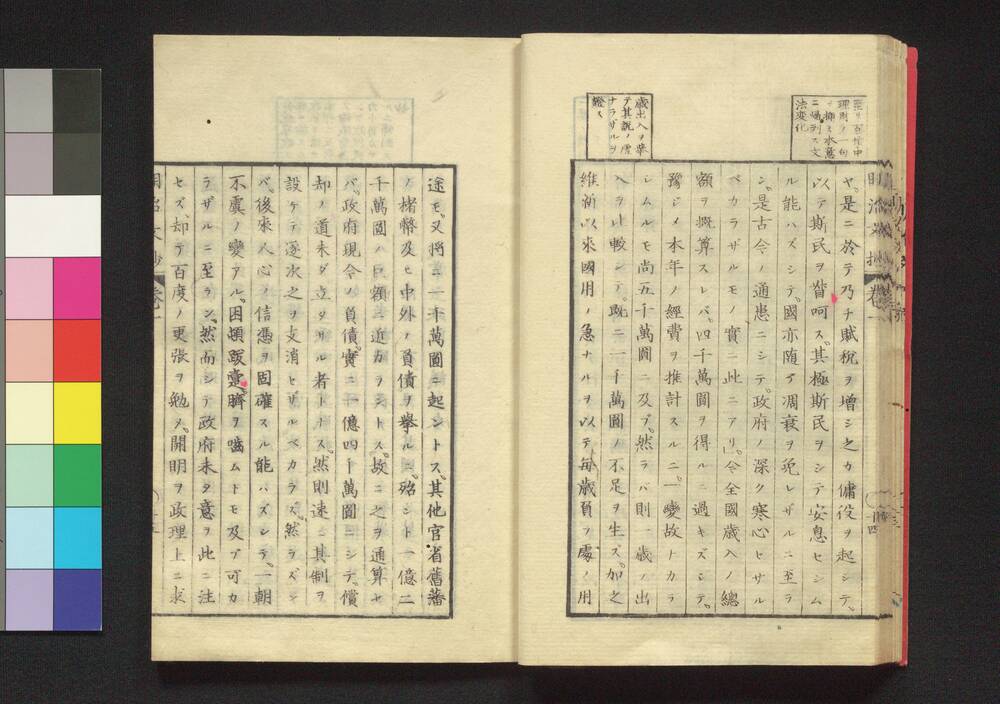 ヤ。是ニ於テ乃チ賦税ヲ増シ之カ傭役ヲ起シテ。
以テ斯民ヲ督呵ス。其極斯民ヲシテ安息セシム
ル能ハズシテ。國亦随テ凋衰ヲ免レザルニ至ラ
ン。是古今ノ通患ニシテ。政府ノ深ク寒心セサル
ベカラザルモノ。實ニ此ニアリ」。今全國歳入ノ總
額ヲ概算スレバ。四千萬圓ヲ得ルニ過キズシテ。
豫ジメ本年ノ經費ヲ推計スルニ。一變故ナカラ
シムルモ尚五千萬圓ニ及ブ。然ラバ則一歳ノ出
入ヲ比較シテ。既ニ一千萬圓ノ不足ヲ生ス。加之
維新以來國用ノ急ナルヲ以テ毎歳負フ處ノ用
歳出入ヲ舉
テ其説ノ虚
ナラザルヲ
證ス
途モ。又將ニ一千萬圓ニ起ントス。其他官省舊藩
ノ楮幣及ヒ中外ノ負債ヲ擧ルニ。殆ント一億二
千萬圓ノ巨額ニ近カラントス。故ニ之ヲ通算セ
バ。政府現今ノ負債。實ニ一億四千萬圓ニシテ。償
却ノ道未ダ立タサル者トス。然則速ニ其制ヲ
設ケテ逐次之ヲ支消セザルベカラズ。然ラズン
バ。後來人心ノ信憑ヲ固確スル能ハズシテ。一朝
不虞ノ變アル。困頓跋疐。臍ヲ噛ムトモ及ブ可カ
ラザルニ至ラン。然而シテ政府未タ意ヲ此ニ注
セズ。却テ百度ノ更張ヲ勉メ。開明ヲ政理上ニ求